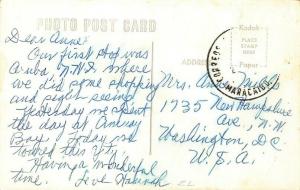 PHOTO POST CARD
Dear Anne:
Our first stop was
Aruba, N.W.I. where
we did some shopping
and beach seeing
Yesterday we spent
the day at
Bay. Today we
toured this city.
Having a wonderful
time. Love Hannah
ADDRESS
Kodak
PLACE
STAMP
HERE
Paper
CORREOS
MARACAIBO
Mrs.
1735 New Hampshire
Ave., N.W.
Washington, D.C.
U.S.A.